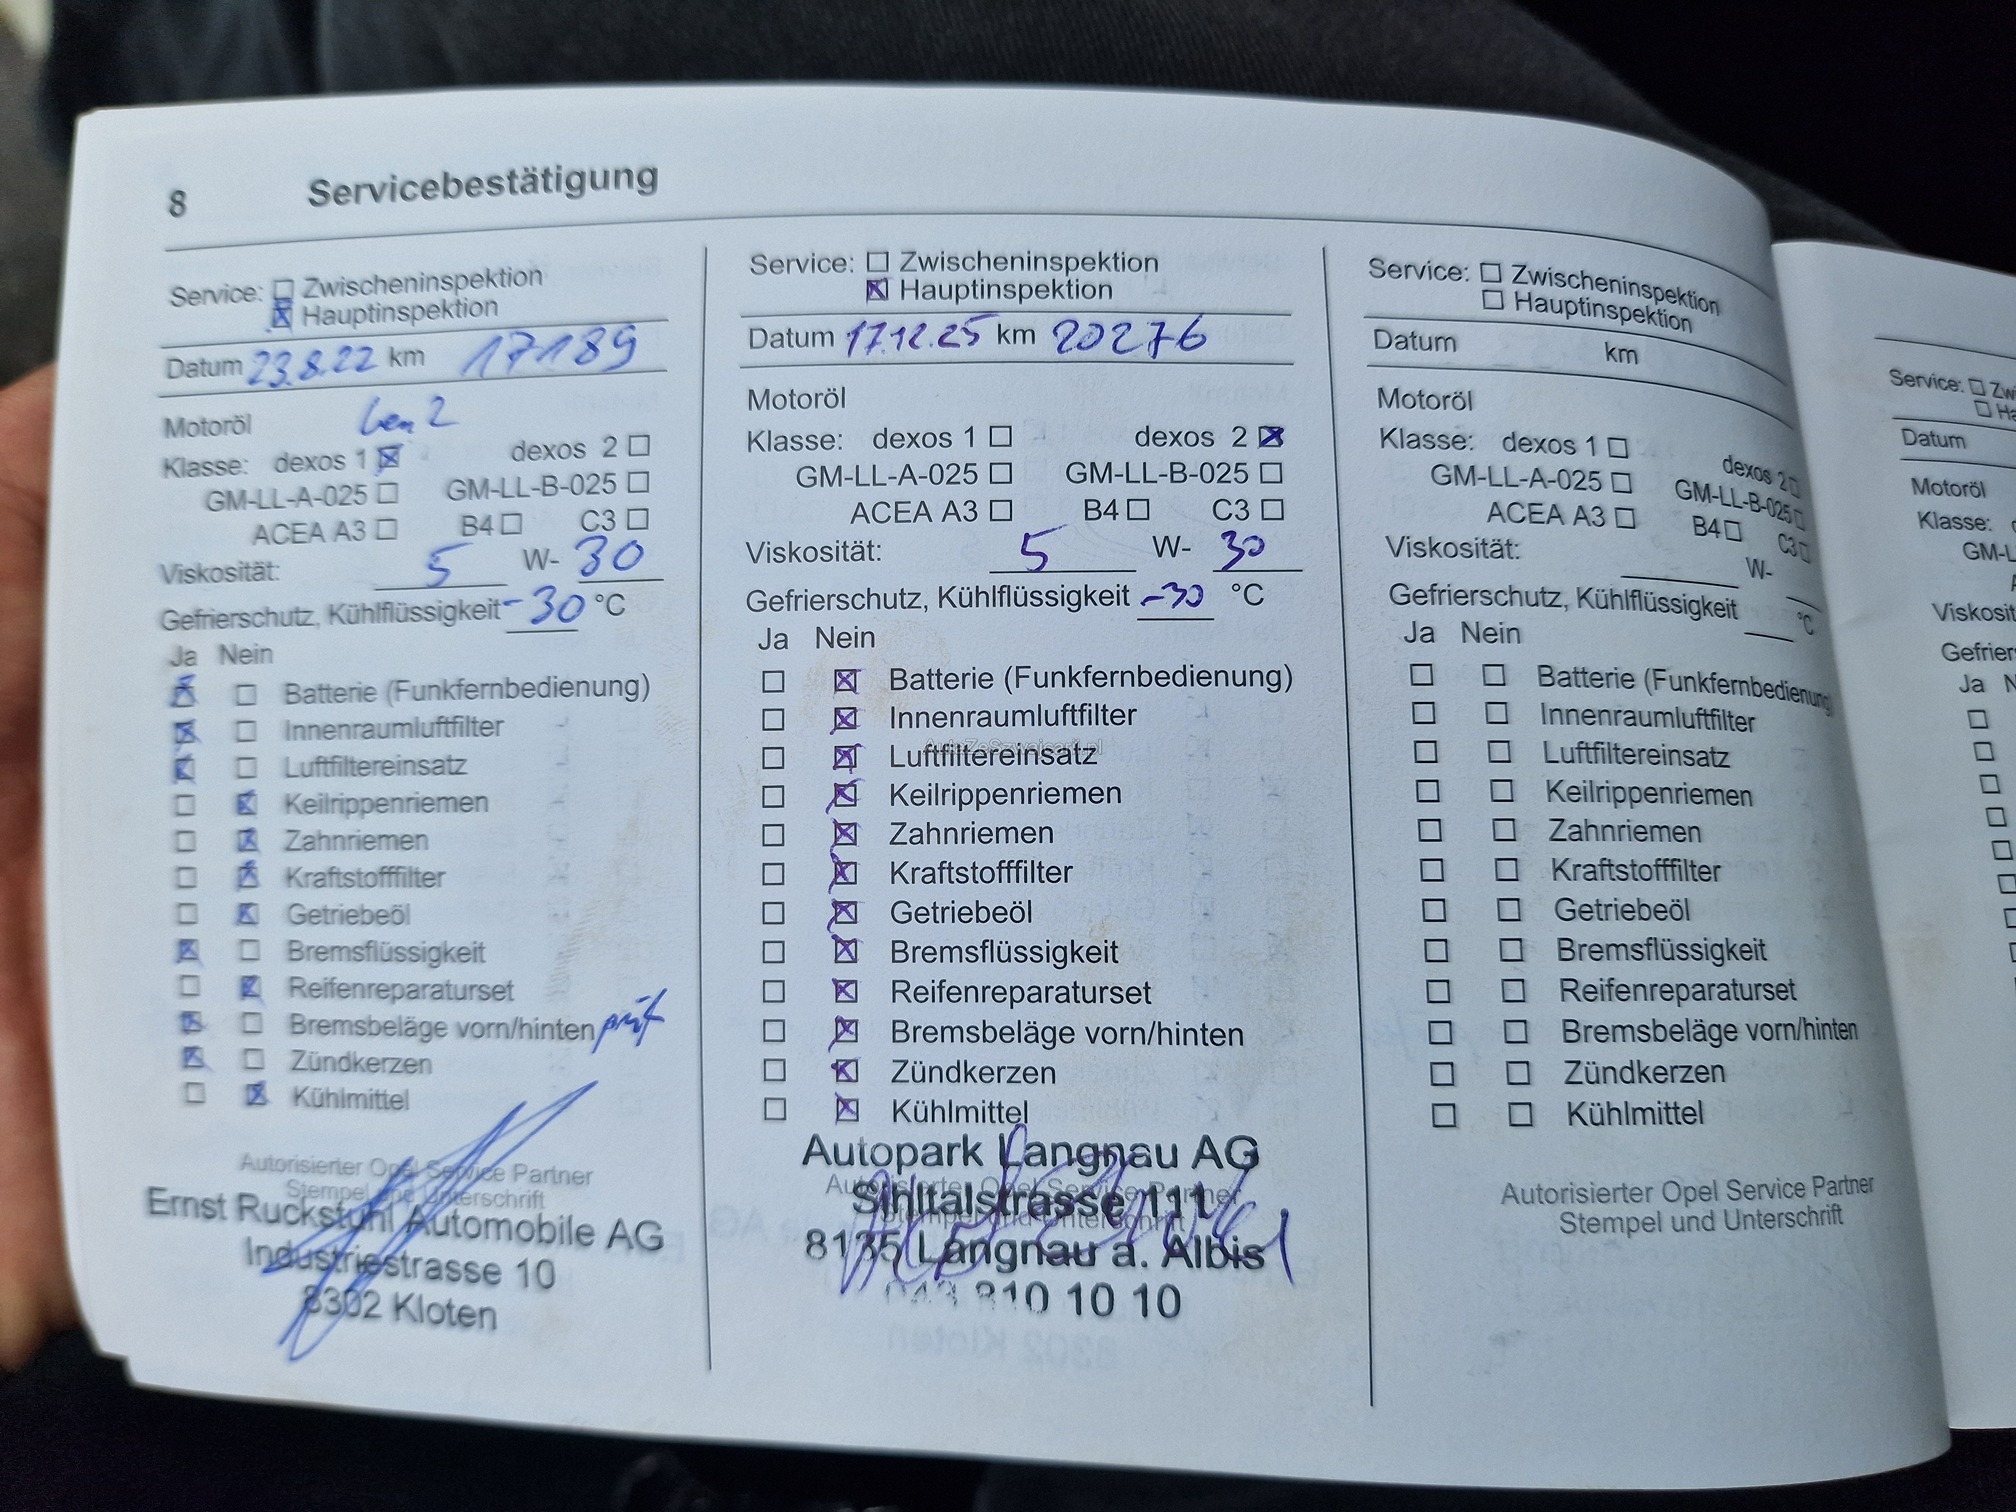 8 Servicebestätigung
Service: ☐ Zwischeninspektion
☒ Hauptinspektion
Datum 23.8.22 km 17189
Motoröl Gen 2
Klasse: dexos 1 ☒ dexos 2 ☐
GM-LL-A-025 ☐ GM-LL-B-025 ☐
ACEA A3 ☐ B4 ☐ C3 ☐
Viskosität: 5 W- 30
Gefrierschutz, Kühlflüssigkeit -30 °C
Ja Nein
☒ ☐ Batterie (Funkfernbedienung)
☒ ☐ Innenraumluftfilter
☒ ☐ Luftfiltereinsatz
☐ ☒ Keilrippenriemen
☐ ☒ Zahnriemen
☐ ☒ Kraftstofffilter
☐ ☒ Getriebeöl
☒ ☐ Bremsflüssigkeit
☐ ☒ Reifenreparaturset
☒ ☐ Bremsbeläge vorn/hinten prüf
☒ ☐ Zündkerzen
☐ ☒ Kühlmittel
Autorisierter Opel Service Partner
Stempel und Unterschrift
Ernst Ruckstuhl Automobile AG
Industriestrasse 10
8302 Kloten
Service: ☐ Zwischeninspektion
☒ Hauptinspektion
Datum 17.12.25 km 20276
Motoröl
Klasse: dexos 1 ☐ dexos 2 ☒
GM-LL-A-025 ☐ GM-LL-B-025 ☐
ACEA A3 ☐ B4 ☐ C3 ☐
Viskosität: 5 W- 30
Gefrierschutz, Kühlflüssigkeit -30 °C
Ja Nein
☐ ☒ Batterie (Funkfernbedienung)
☐ ☒ Innenraumluftfilter
☐ ☒ Luftfiltereinsatz
☐ ☒ Keilrippenriemen
☐ ☒ Zahnriemen
☐ ☒ Kraftstofffilter
☐ ☒ Getriebeöl
☐ ☒ Bremsflüssigkeit
☐ ☒ Reifenreparaturset
☐ ☒ Bremsbeläge vorn/hinten
☐ ☒ Zündkerzen
☐ ☒ Kühlmittel
Autopark Langnau AG
Autorisierter Opel Service Partner
Sihltalstrasse 111
Stempel und Unterschrift
8135 Langnau a. Albis
043 310 10 10
Service: ☐ Zwischeninspektion
☐ Hauptinspektion
Datum km
Motoröl
Klasse: dexos 1 ☐ dexos 2 ☐
GM-LL-A-025 ☐ GM-LL-B-025 ☐
ACEA A3 ☐ B4 ☐ C3 ☐
Viskosität: W-
Gefrierschutz, Kühlflüssigkeit °C
Ja Nein
☐ ☐ Batterie (Funkfernbedienung)
☐ ☐ Innenraumluftfilter
☐ ☐ Luftfiltereinsatz
☐ ☐ Keilrippenriemen
☐ ☐ Zahnriemen
☐ ☐ Kraftstofffilter
☐ ☐ Getriebeöl
☐ ☐ Bremsflüssigkeit
☐ ☐ Reifenreparaturset
☐ ☐ Bremsbeläge vorn/hinten
☐ ☐ Zündkerzen
☐ ☐ Kühlmittel
Autorisierter Opel Service Partner
Stempel und Unterschrift
Service: ☐ Zw
☐ Ha
Datum
Motoröl
Klasse:
GM-L
Viskosit
Gefrier
Ja N